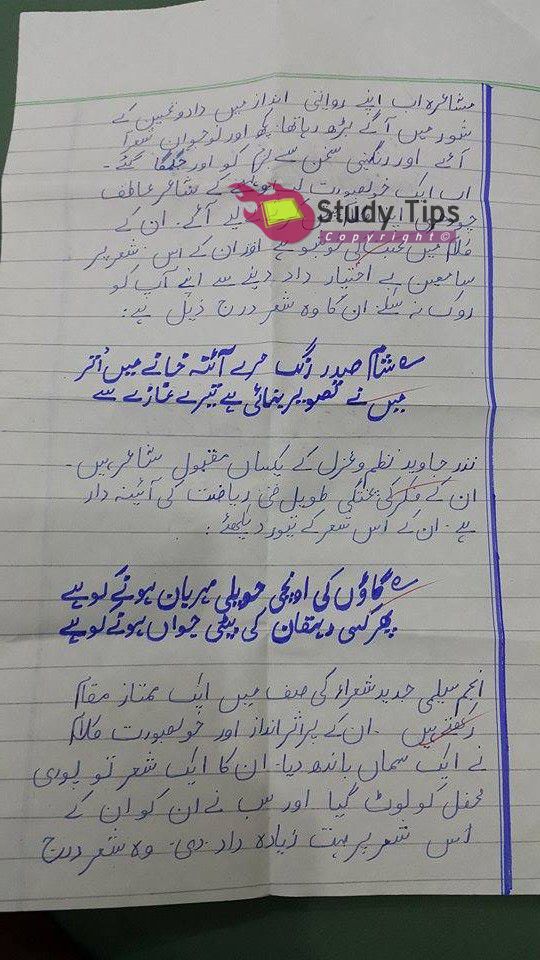 مشاعرہ اب اپنے روائتی انداز میں داد و تحسین کے
شور میں آگے بڑھ رہا تھا۔ کچھ اور نوجوان شعرآ
آئے اور رنگینی سخن سے بزم کو اور جگمگا گئے۔
اب ایک خوبصورت لب و لہجے کے شاعر عاطف
آئے۔ ان کے
Study Tips
Copyright©
کلام میں کی خوشبو ہے اور ان کے اس شعر پر
سامعین بے اختیار داد دینے سے اپنے آپ کو
روک نہ سکے۔ ان کا وہ شعر درج ذیل ہے:
شام صد رنگ مرے آئنہ خانے میں اُتر
میں نے تصویر بنائی ہے تیرے غازے سے
نذر جاوید نظم و غزل کے یکساں مقبول شاعر ہیں۔
ان کے فکر کی پختگی طویل فنی ریاضت کی آئینہ دار
ہے۔ ان کے اس شعر کے تیور دیکھئے:
گاؤں کی اونچی حویلی مہربان ہونے کو ہے
پھر کسی دہقان کی بیٹی جواں ہونے کو ہے
انجم سلیمی جدید شعراء کی صف میں ایک ممتاز مقام
رکھتے ہیں۔ ان کے پراثر انداز اور خوبصورت کلام
نے ایک سماں باندھ دیا۔ ان کا ایک شعر تو پوری
محفل کو لوٹ گیا اور سب نے ان کو ان کے
اس شعر پر بہت زیادہ داد دی۔ وہ شعر درج